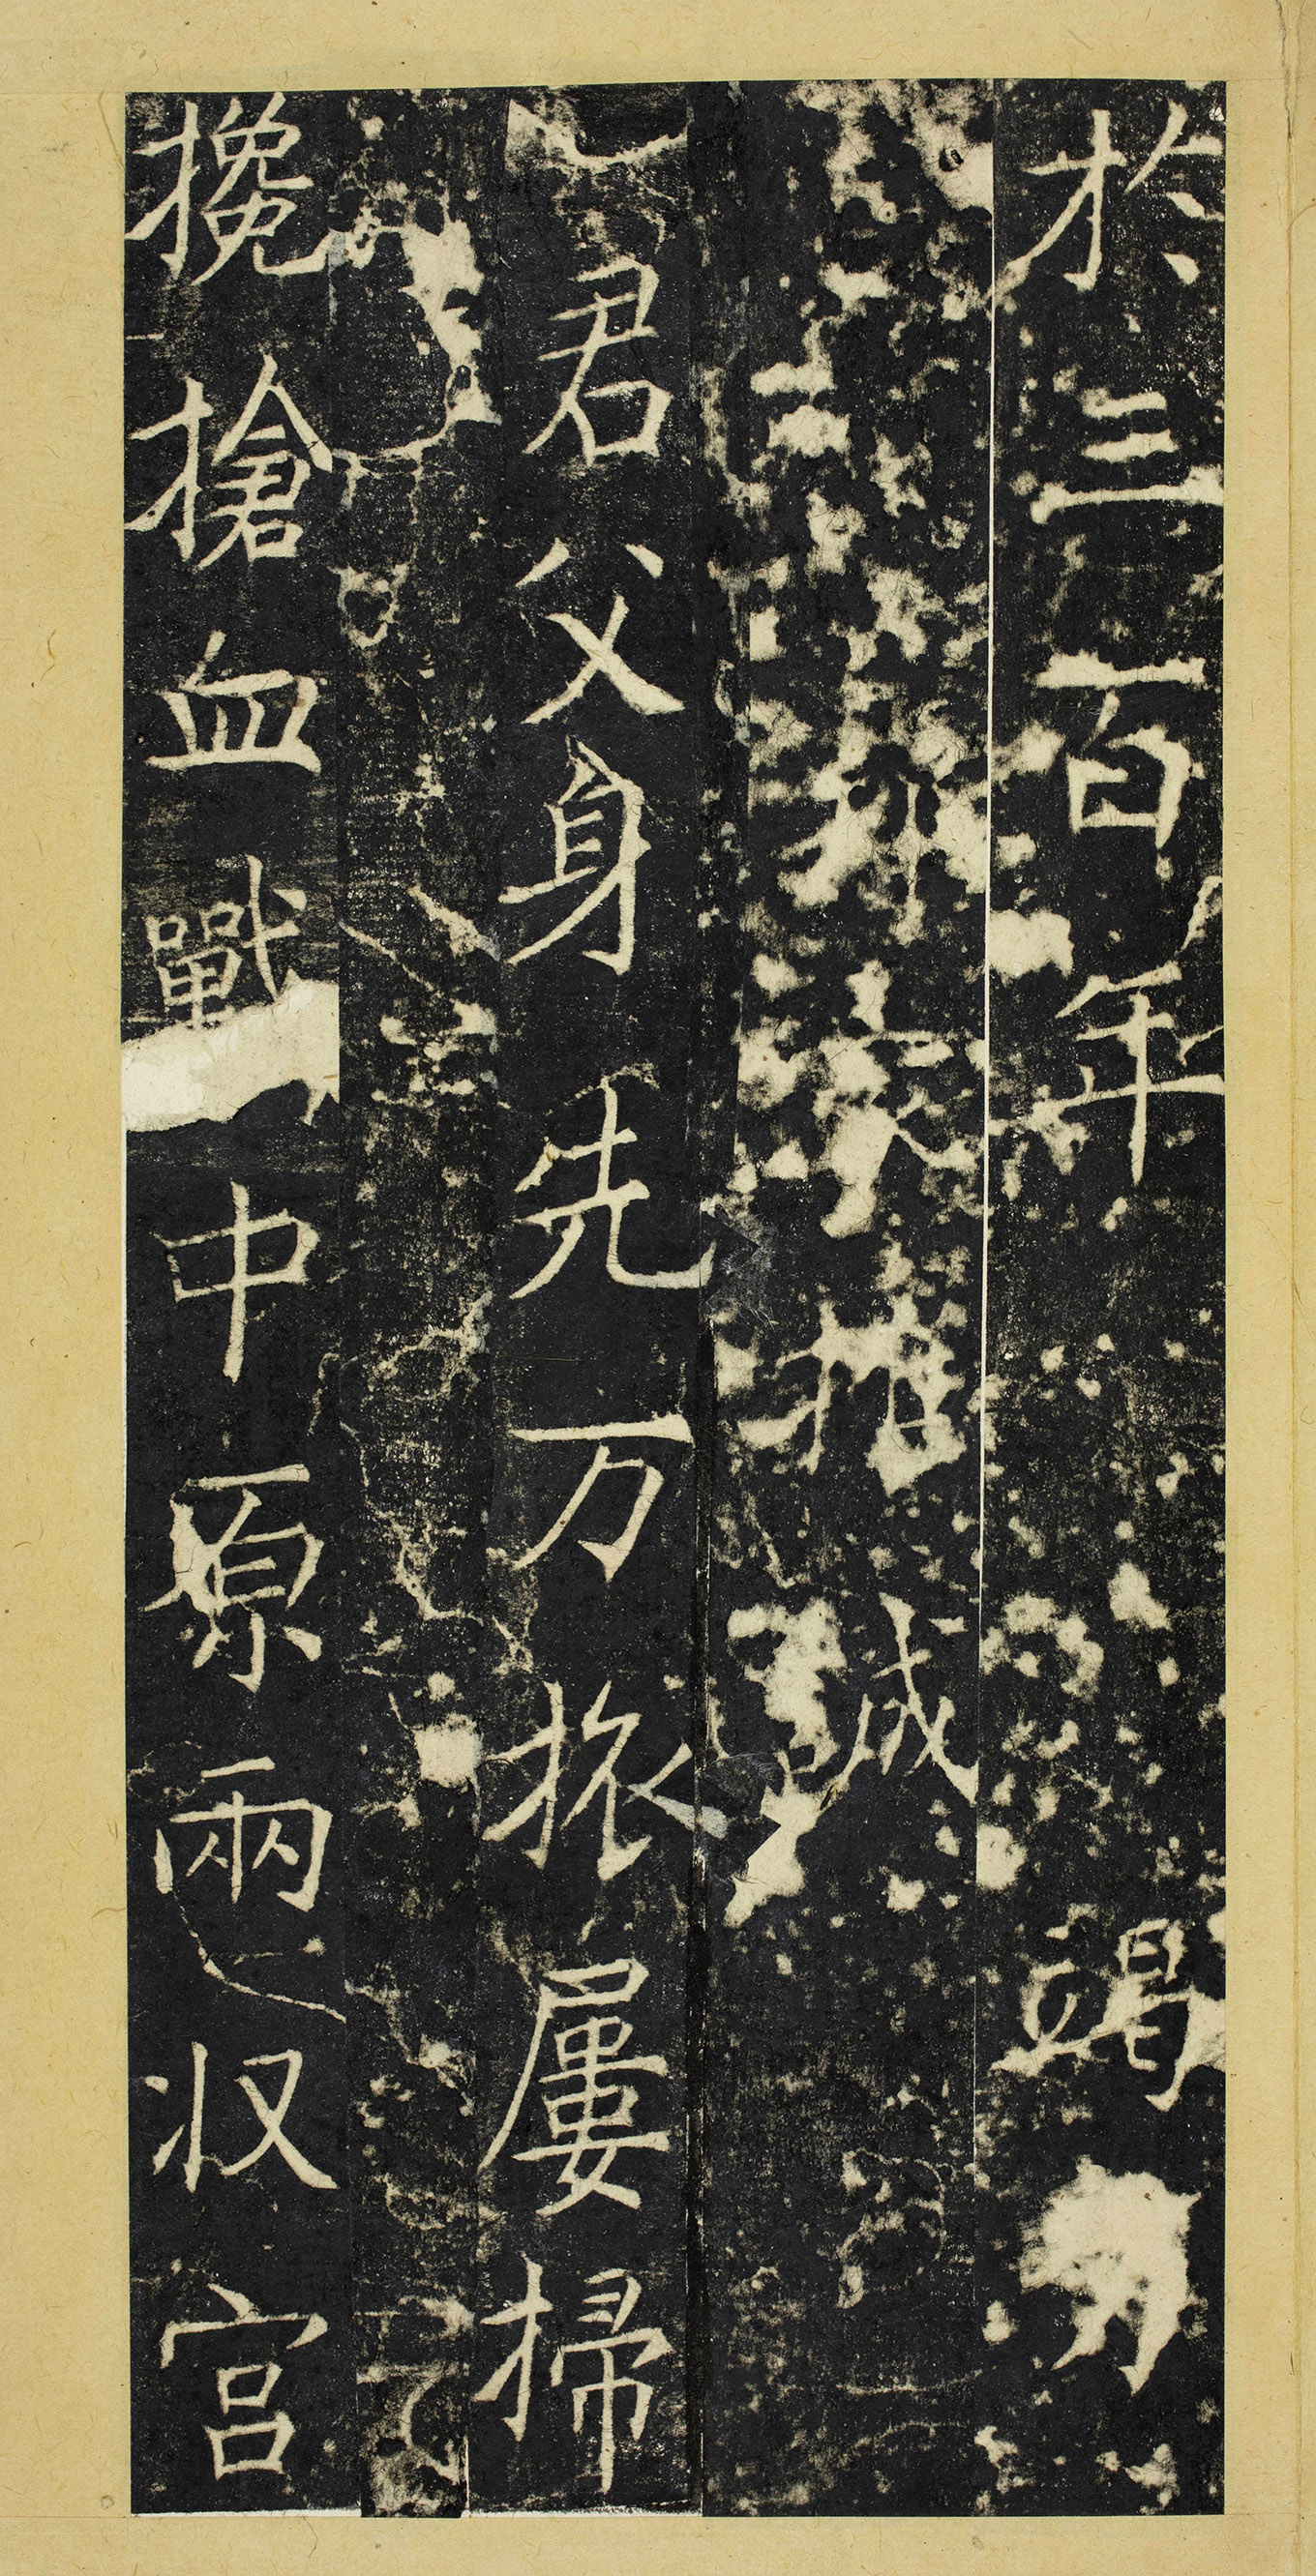 於三百年竭力
誠
君父身先万旅屢掃
攙搶血戰中原兩収宫